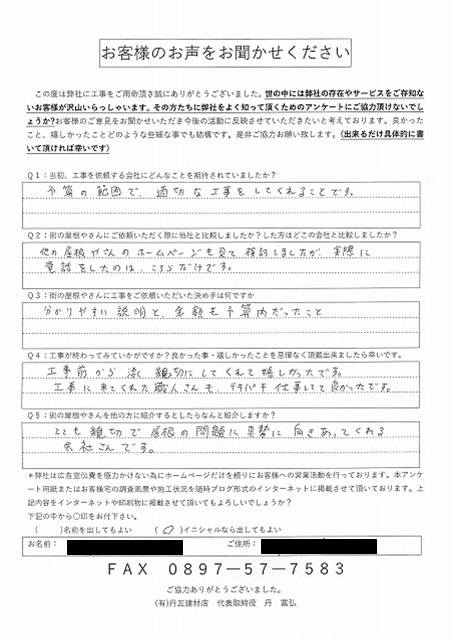 お客様のお声をお聞かせください
この度は弊社に工事をご用命頂き誠にありがとうございました。世の中には弊社の存在やサービスをご存知な
いお客様が沢山いらっしゃいます。その方たちに弊社をよく知って頂くためのアンケートにご協力頂けないでし
ょうか?お客様のご意見をお聞かせいただき今後の活動に反映させていただきたいと考えております。良かった
こと、嬉しかったことどのような些細な事でも結構です。是非ご協力お願い致します。(出来るだけ具体的に書
いて頂ければ幸いです)
Q1:当初、工事を依頼する会社にどんなことを期待されていましたか?
予算の範囲で、適切な工事をしてくれることです。
Q2:街の屋根やさんにご依頼いただく際に他社と比較しましたか?した方はどこの会社と比較しましたか?
他の屋根やさんのホームページも見て検討しましたが、実際に
電話をしたのは、こちらだけです。
Q3:街の屋根やさんに工事をご依頼いただいた決め手は何ですか
分かりやすい説明と、金額も予算内だったこと
Q4:工事が終わってみていかがですか?良かった事・嬉しかったことを忌憚なく頂戴出来ましたら幸いです。
工事前から凄く親切にしてくれて嬉しかったです。
工事に来てくれた職人さんも、テキパキ仕事して良かったです。
Q5:街の屋根やさんを他の方に紹介するとしたらなんと紹介しますか?
とても親切で屋根の問題に真摯に向きあってくれる
会社さんです。
*弊社は広告宣伝費を極力かけない為にホームページだけを頼りにお客様への営業活動を行っております。本アンケ
ート用紙またはお客様宅の調査風景や施工状況を随時ブログ形式のインターネットに掲載させて頂いております。上
記内容をインターネットや印刷物に掲載させて頂いてもよろしいでしょうか?
下記の中から〇印をお付下さい。
( )名前を出してもよい (〇)イニシャルなら出してもよい
お名前: ご住所:
FAX 0897-57-7583
ご協力ありがとうございました。
(有)丹瓦建材店 代表取締役 丹 富弘